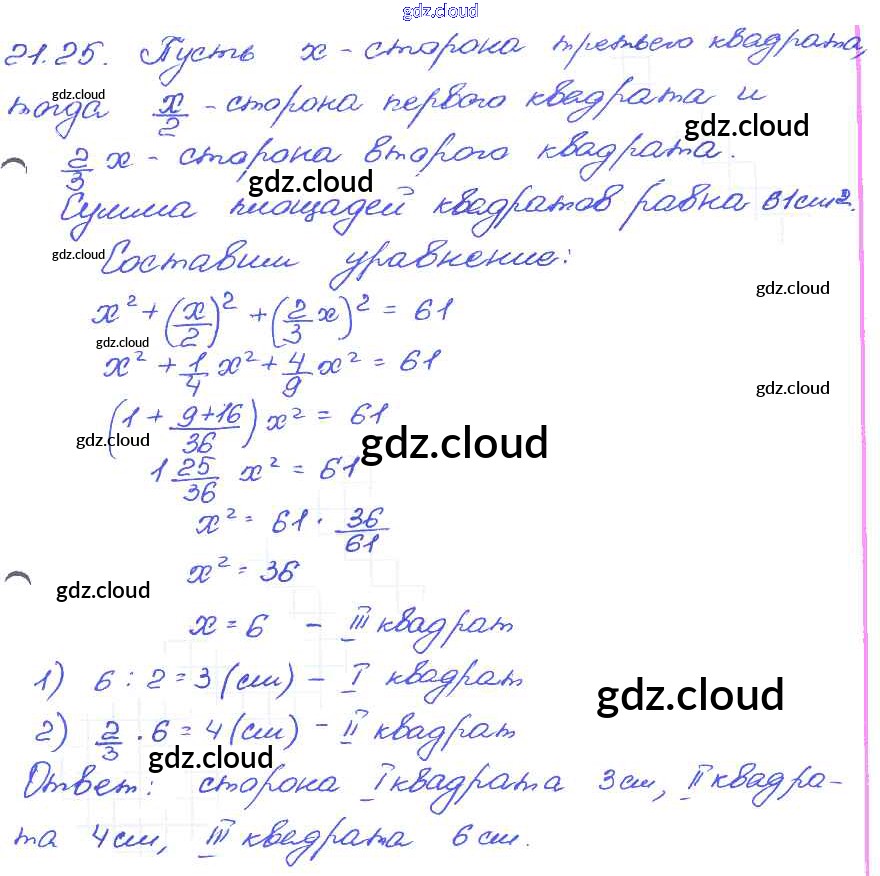 gdz.cloud
21.25. Пусть x - сторона третьего квадрата,
gdz.cloud
тогда x/2 - сторона первого квадрата и
gdz.cloud
2/3 x - сторона второго квадрата.
gdz.cloud
Сумма площадей квадратов равна 61 см².
gdz.cloud
Составим уравнение:
gdz.cloud
x² + (x/2)² + (2/3 x)² = 61
gdz.cloud
x² + 1/4 x² + 4/9 x² = 61
gdz.cloud
(1 + 9+16/36) x² = 61
gdz.cloud
gdz.cloud
1 25/36 x² = 61
x² = 61 · 36/61
x² = 36
gdz.cloud
x = 6 - III квадрат
1) 6 : 2 = 3 (см) - I квадрат
gdz.cloud
2) 2/3 · 6 = 4 (см) - II квадрат
gdz.cloud
Ответ: сторона I квадрата 3 см, II квадра-
та 4 см, III квадрата 6 см.